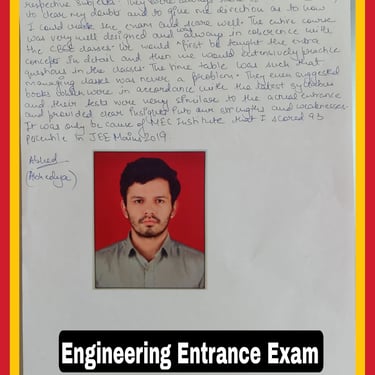 respective subjects. They were always there
to clear my doubts and to give me direction as to how
I could crack the exam and score well. The entire course
was very well designed and was always in coherence with
the CBSE classes. We would first be taught the extra
concepts in detail and then we would extensively practice
questions in the classes. The time table was such that
managing classes was never a problem. They even suggested
books which were in accordance with the latest syllabus
and their tests were very similar to the actual entrance
and provided clear insights into our strengths and weaknesses.
It was only because of MEC Institute that I scored 93
percentile in JEE Mains 2019.
Engineering Entrance Exam